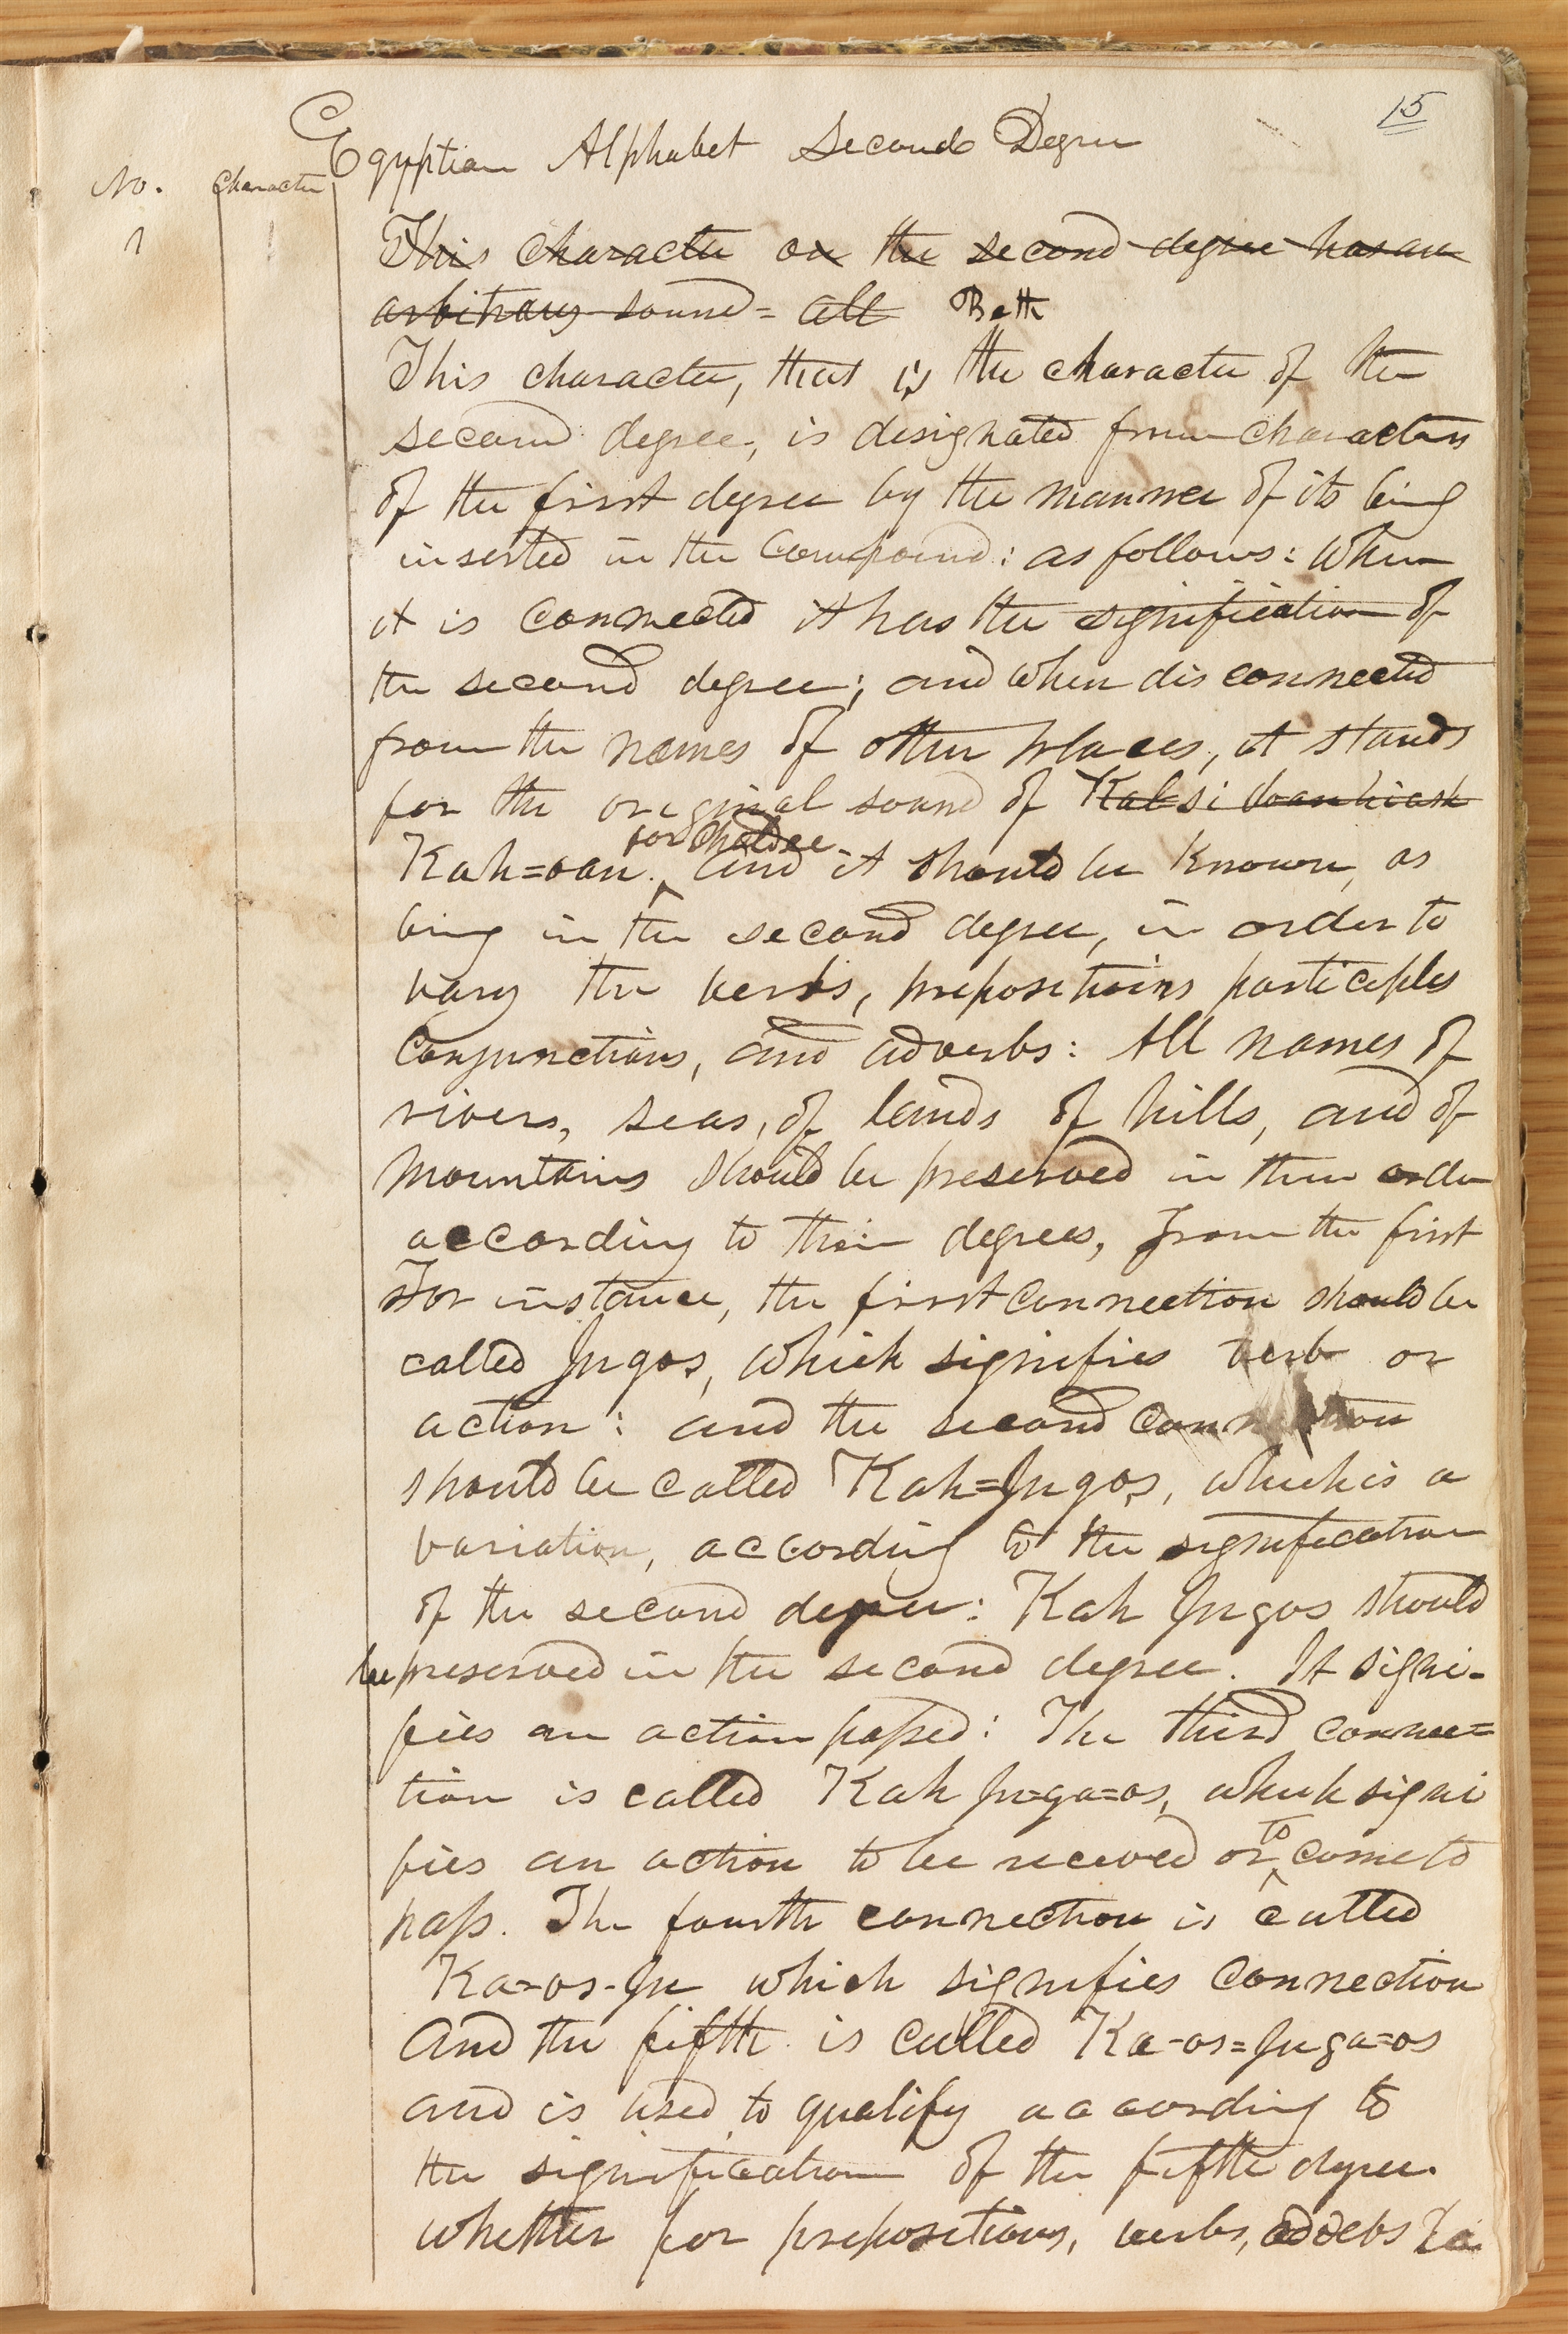 15
Egyptian Alphabet Second Degree
No. Character
1
This character on the second degree has an
arbitrary sound= all Beth
This character, that is the character of the
second degree, is designated from characters
of the first degree by the manner of its being
inserted in the Compound: as follows: When
it is connected it has the signification of
the second degree; and when dis connected
from the names of other places, it stands
for the original sound of
for Chaldee
Kah=oan. ‸ and it should be known, as
being in the second degree, in order to
vary the verbs, prepositions participles
Conjunctions, and adverbs: All names of
rivers, seas, of lands of hills, and of
Mountains should be preserved in their order
according to their degrees, from the first
For instance, the first Connection should be
called Jugos, which signifies verb or
action: and the second connection
should be called Kah=Jugos, which is a
variation, according to the signification
of the second degree: Kah Jugos should
be preserved in the second degree. It signi-
fies an action passed: The third connec=
tion is called Kah Ju=ga=os, which signi
to
fies an action to be received or ‸ come to
pass. The fourth connection is called
Ka=os-Ju which signifies Connection
And the fifth is called Ka-os=Juga=os
and is used to qualify according to
the signification of the fifth degree.
whether for prepositions, verbs,